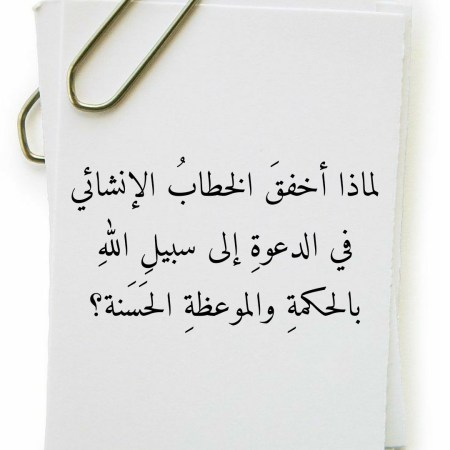 لماذا أخفقَ الخطابُ الإنشائي
في الدعوةِ إلى سبيلِ اللهِ
بالحكمةِ والموعظةِ الحَسَنة؟